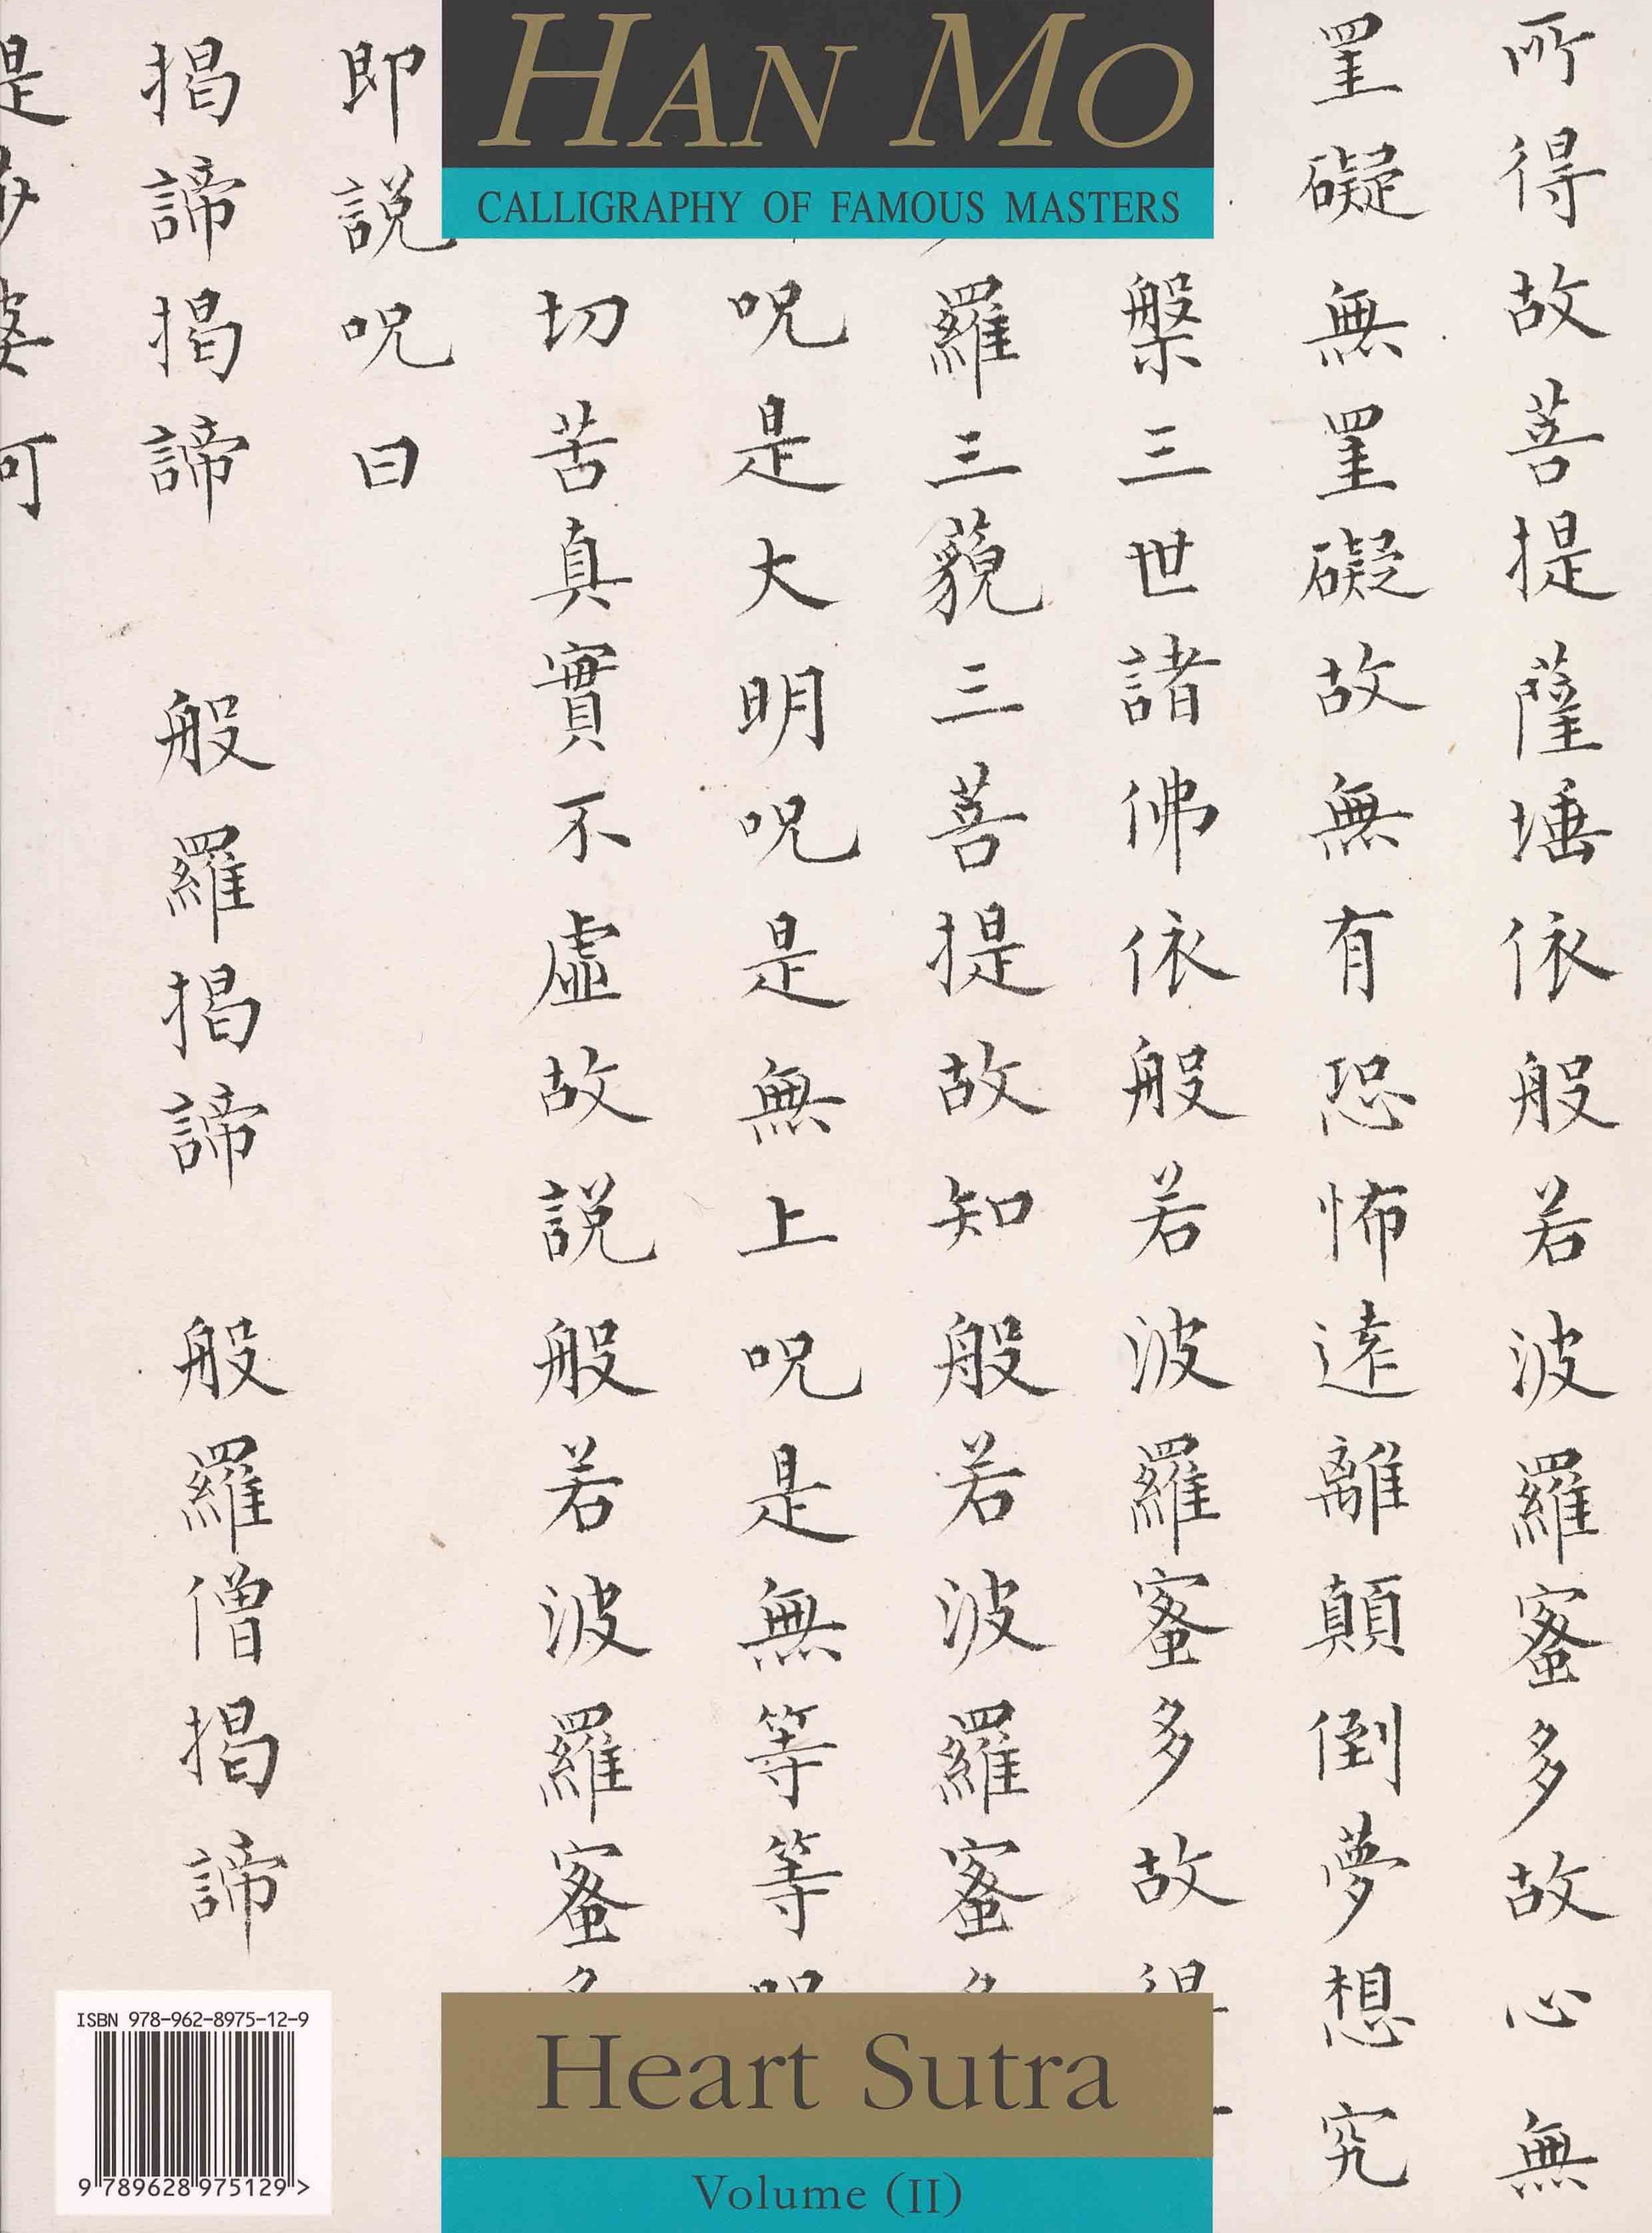 HAN MO
CALLIGRAPHY OF FAMOUS MASTERS
所得故菩提薩埵依般若波羅蜜多故心無
罣礙無罣礙故無有恐怖遠離顛倒夢想究
槃三世諸佛依般若波羅蜜多故
羅三藐三菩提故知般若波羅蜜
呪是大明呪是無上呪是無等等
切苦真實不虛故説般若波羅蜜
即説呪曰
揭諦揭諦 般羅揭諦 般羅僧揭諦
Heart Sutra
Volume (II)
ISBN 978-962-8975-12-9
9 789628 975129 >